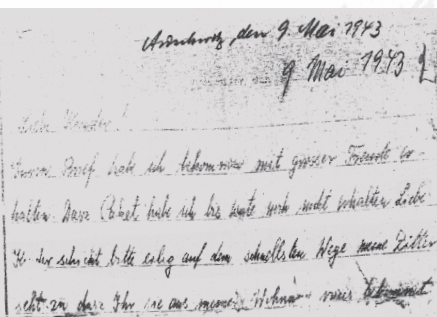 Auschwitz, den 9. Mai 1943
9 Mai 1943
Liebe Kinder!
Euren Brief habe ich bekommen mit grosser Freude er-
halten. Dass Paket habe ich bis heute noch nicht erhalten Liebe
bitte eilig auf dem schnellsten Wege meine
seht zu dass Ihr sie aus meiner Wohnung raus bekommt